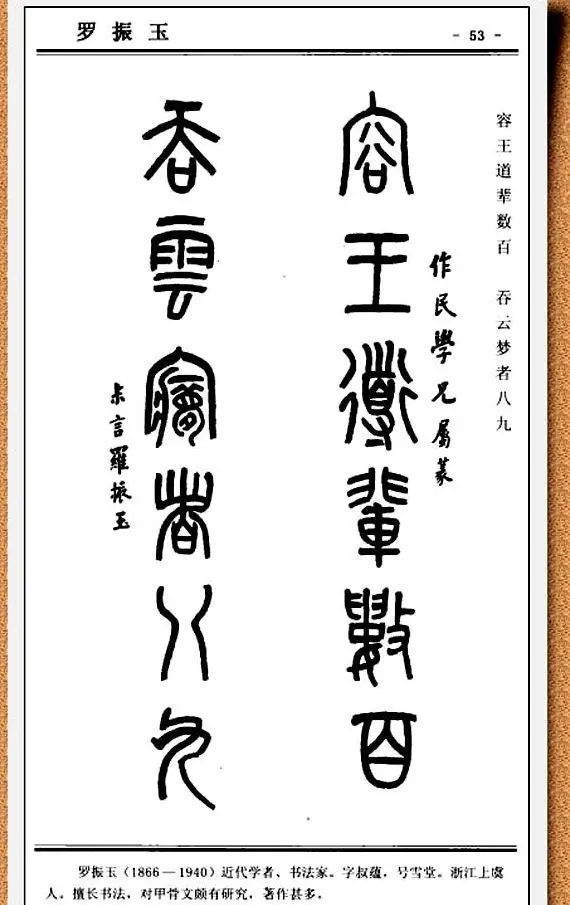 罗振玉
- 53 -
容王道辈数百 吞云梦者八九
作民學兄屬篆
容王導輩數百
吞雲夢者八九
尗言羅振玉
罗振玉（1866—1940）近代学者、书法家。字叔蕴，号雪堂。浙江上虞
人。擅长书法，对甲骨文颇有研究，著作甚多。